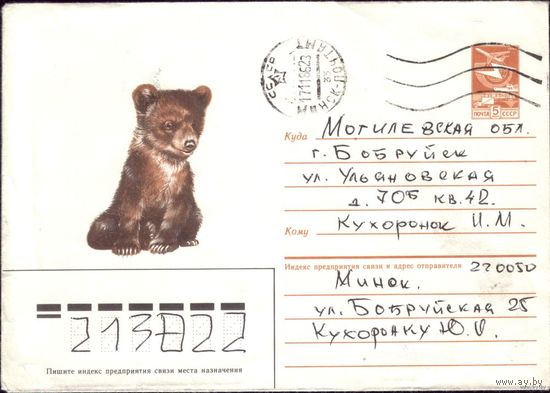 СССР
МИНСК-ПОЧТАМТ
17118623
ПОЧТА 5 СССР
Куда Могилевская обл.
г. Бобруйск
ул. Ульяновская
д. 70Б кв. 42
Кому Кухоронок И. М.
Индекс предприятия связи и адрес отправителя 220050
Минск.
ул. Бобруйская 25
Кухоронку Ю. И.
213822
Пишите индекс предприятия связи места назначения
www.ay.by